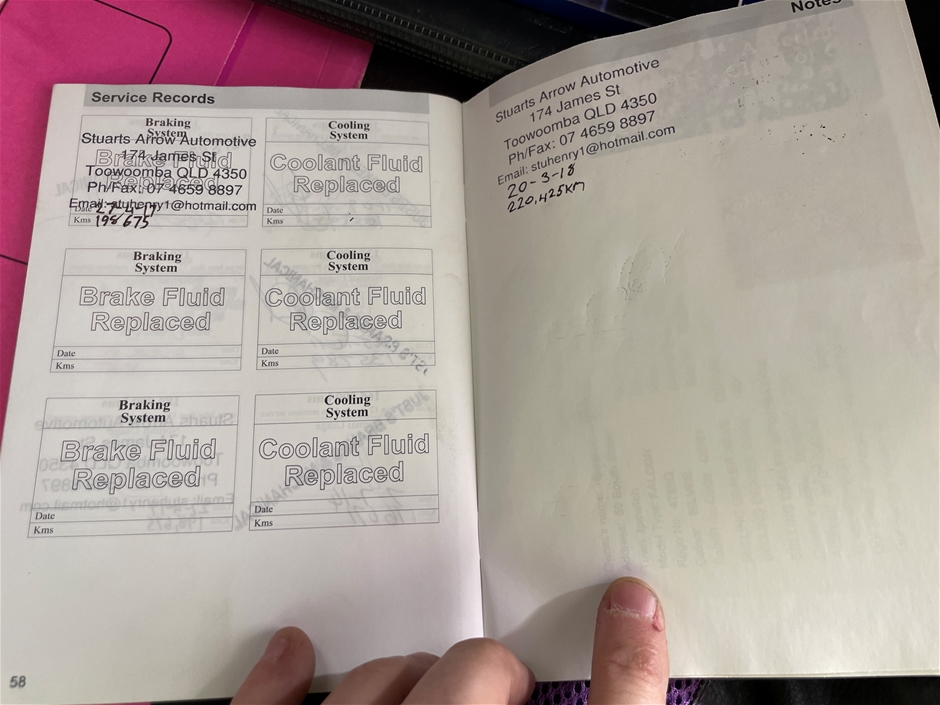 Service Records
Braking
System
Brake Fluid
Replaced
Stuarts Arrow Automotive
174 James St
Toowoomba QLD 4350
Ph/Fax: 07 4659 8897
Email: stuhenry1@hotmail.com
Date
Kms 198675
Cooling
System
Coolant Fluid
Replaced
Date
Kms
Braking
System
Brake Fluid
Replaced
Date
Kms
Cooling
System
Coolant Fluid
Replaced
Date
Kms
Braking
System
Brake Fluid
Replaced
Date
Kms
Cooling
System
Coolant Fluid
Replaced
Date
Kms
58
Notes
Stuarts Arrow Automotive
174 James St
Toowoomba QLD 4350
Ph/Fax: 07 4659 8897
Email: stuhenry1@hotmail.com
20-3-18
220,425KM